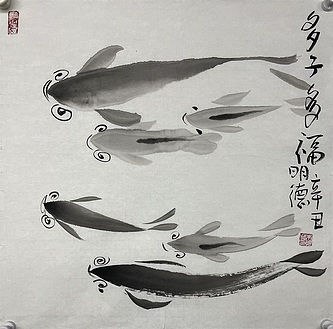 多子多福
辛丑
明德